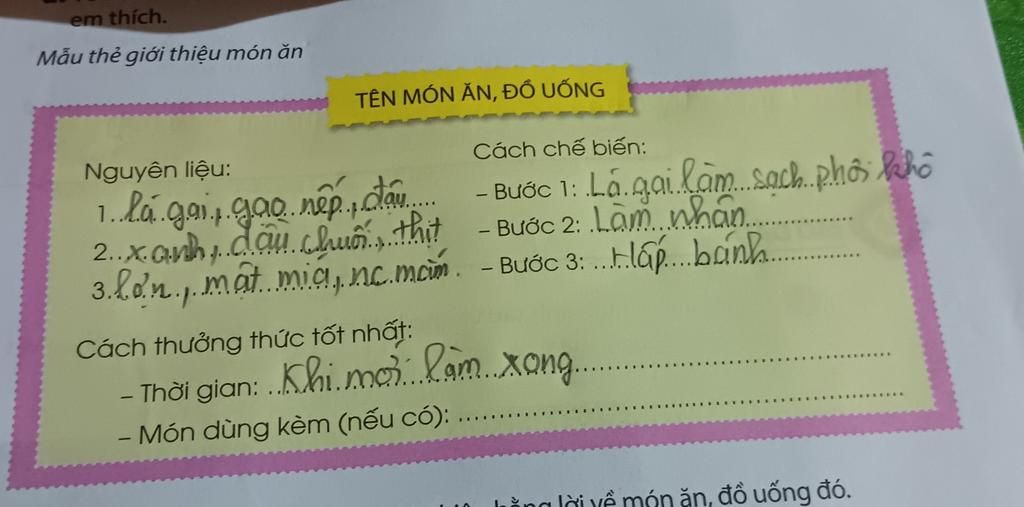 em thích.
Mẫu thẻ giới thiệu món ăn
TÊN MÓN ĂN, ĐỒ UỐNG
Nguyên liệu:
1. lá gai, gạo nếp, đậu
2. xanh, dầu chuối, thịt
3. lợn, mật mía, nc mắm.
Cách chế biến:
– Bước 1: Lá gai làm sạch phơi khô
– Bước 2: Làm nhân
– Bước 3: Hấp bánh
Cách thưởng thức tốt nhất:
– Thời gian: Khi mới làm xong
– Món dùng kèm (nếu có):
bằng lời về món ăn, đồ uống đó.